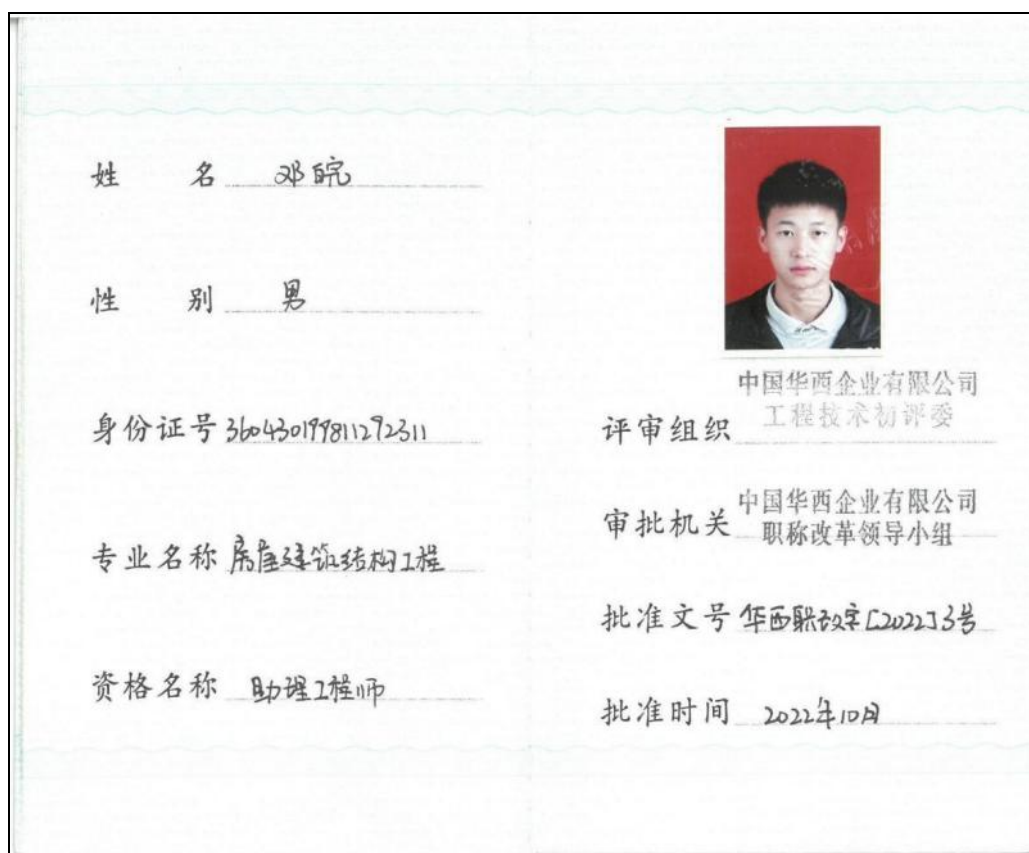 姓名 邓皖
性别 男
身份证号 360430199811292311
专业名称 房屋建筑结构工程
资格名称 助理工程师
中国华西企业有限公司
评审组织 工程技术初评委
中国华西企业有限公司
审批机关 职称改革领导小组
批准文号 华西职改字[2022]3号
批准时间 2022年10月